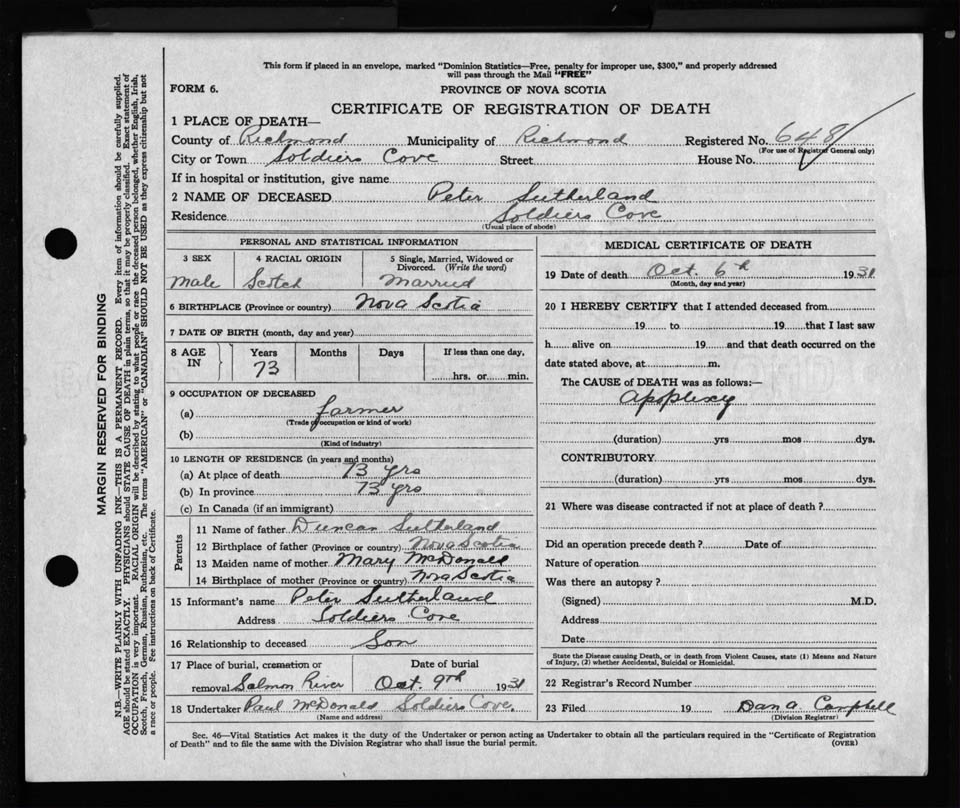 This form if placed in an envelope, marked "Dominion Statistics—Free, penalty for improper use, $300," and properly addressed
will pass through the Mail "FREE"
FORM 6.
PROVINCE OF NOVA SCOTIA
CERTIFICATE OF REGISTRATION OF DEATH
1 PLACE OF DEATH—
County of Richmond Municipality of Richmond Registered No. 648
(For use of Registrar General only)
City or Town Soldiers Cove Street House No.
If in hospital or institution, give name
2 NAME OF DECEASED Peter Sutherland
Residence Soldiers Cove
(Usual place of abode)
PERSONAL AND STATISTICAL INFORMATION
3 SEX 4 RACIAL ORIGIN 5 Single, Married, Widowed or Divorced. (Write the word)
Male Scotch Married
6 BIRTHPLACE (Province or country) Nova Scotia
7 DATE OF BIRTH (month, day and year)
8 AGE IN Years Months Days If less than one day,
73 hrs. or min.
9 OCCUPATION OF DECEASED
(a) farmer
(Trade or occupation or kind of work)
(b)
(Kind of industry)
10 LENGTH OF RESIDENCE (in years and months)
(a) At place of death 73 yrs
(b) In province 73 yrs
(c) In Canada (if an immigrant)
Parents
11 Name of father Duncan Sutherland
12 Birthplace of father (Province or country) Nova Scotia
13 Maiden name of mother Mary McDonald
14 Birthplace of mother (Province or country) Nova Scotia
15 Informant's name Peter Sutherland
Address Soldiers Cove
16 Relationship to deceased Son
17 Place of burial, cremation or Date of burial
removal Salmon River Oct. 9th 1931
18 Undertaker Paul McDonald Soldiers Cove.
(Name and address)
MEDICAL CERTIFICATE OF DEATH
19 Date of death Oct. 6th 1931
(Month, day and year)
20 I HEREBY CERTIFY that I attended deceased from
19 to 19 that I last saw
h alive on 19 and that death occurred on the
date stated above, at m.
The CAUSE of DEATH was as follows:—
Apoplexy
(duration) yrs mos dys.
CONTRIBUTORY
(duration) yrs mos dys.
21 Where was disease contracted if not at place of death?
Did an operation precede death? Date of
Nature of operation
Was there an autopsy?
(Signed) M.D.
Address
Date
State the Disease causing Death, or in death from Violent Causes, state (1) Means and Nature
of Injury, (2) whether Accidental, Suicidal or Homicidal.
22 Registrar's Record Number
23 Filed 19 Dan A. Campbell
(Division Registrar)
Sec. 46—Vital Statistics Act makes it the duty of the Undertaker or person acting as Undertaker to obtain all the particulars required in the "Certificate of Registration
of Death" and to file the same with the Division Registrar who shall issue the burial permit.
(OVER)
MARGIN RESERVED FOR BINDING
N.B.—WRITE PLAINLY WITH UNFADING INK—THIS IS A PERMANENT RECORD. Every item of information should be carefully supplied.
AGE should be stated EXACTLY. PHYSICIANS should STATE CAUSE OF DEATH in plain terms, so that it may be properly classified. Exact statement of
OCCUPATION is very important. RACIAL ORIGIN will be described by stating to what people or race the deceased person belonged, whether English, Irish,
Scotch, French, German, Russian, Ruthenian, etc. The terms "AMERICAN" or "CANADIAN" SHOULD NOT BE USED as they express citizenship but not
a race or people. See instructions on back of Certificate.